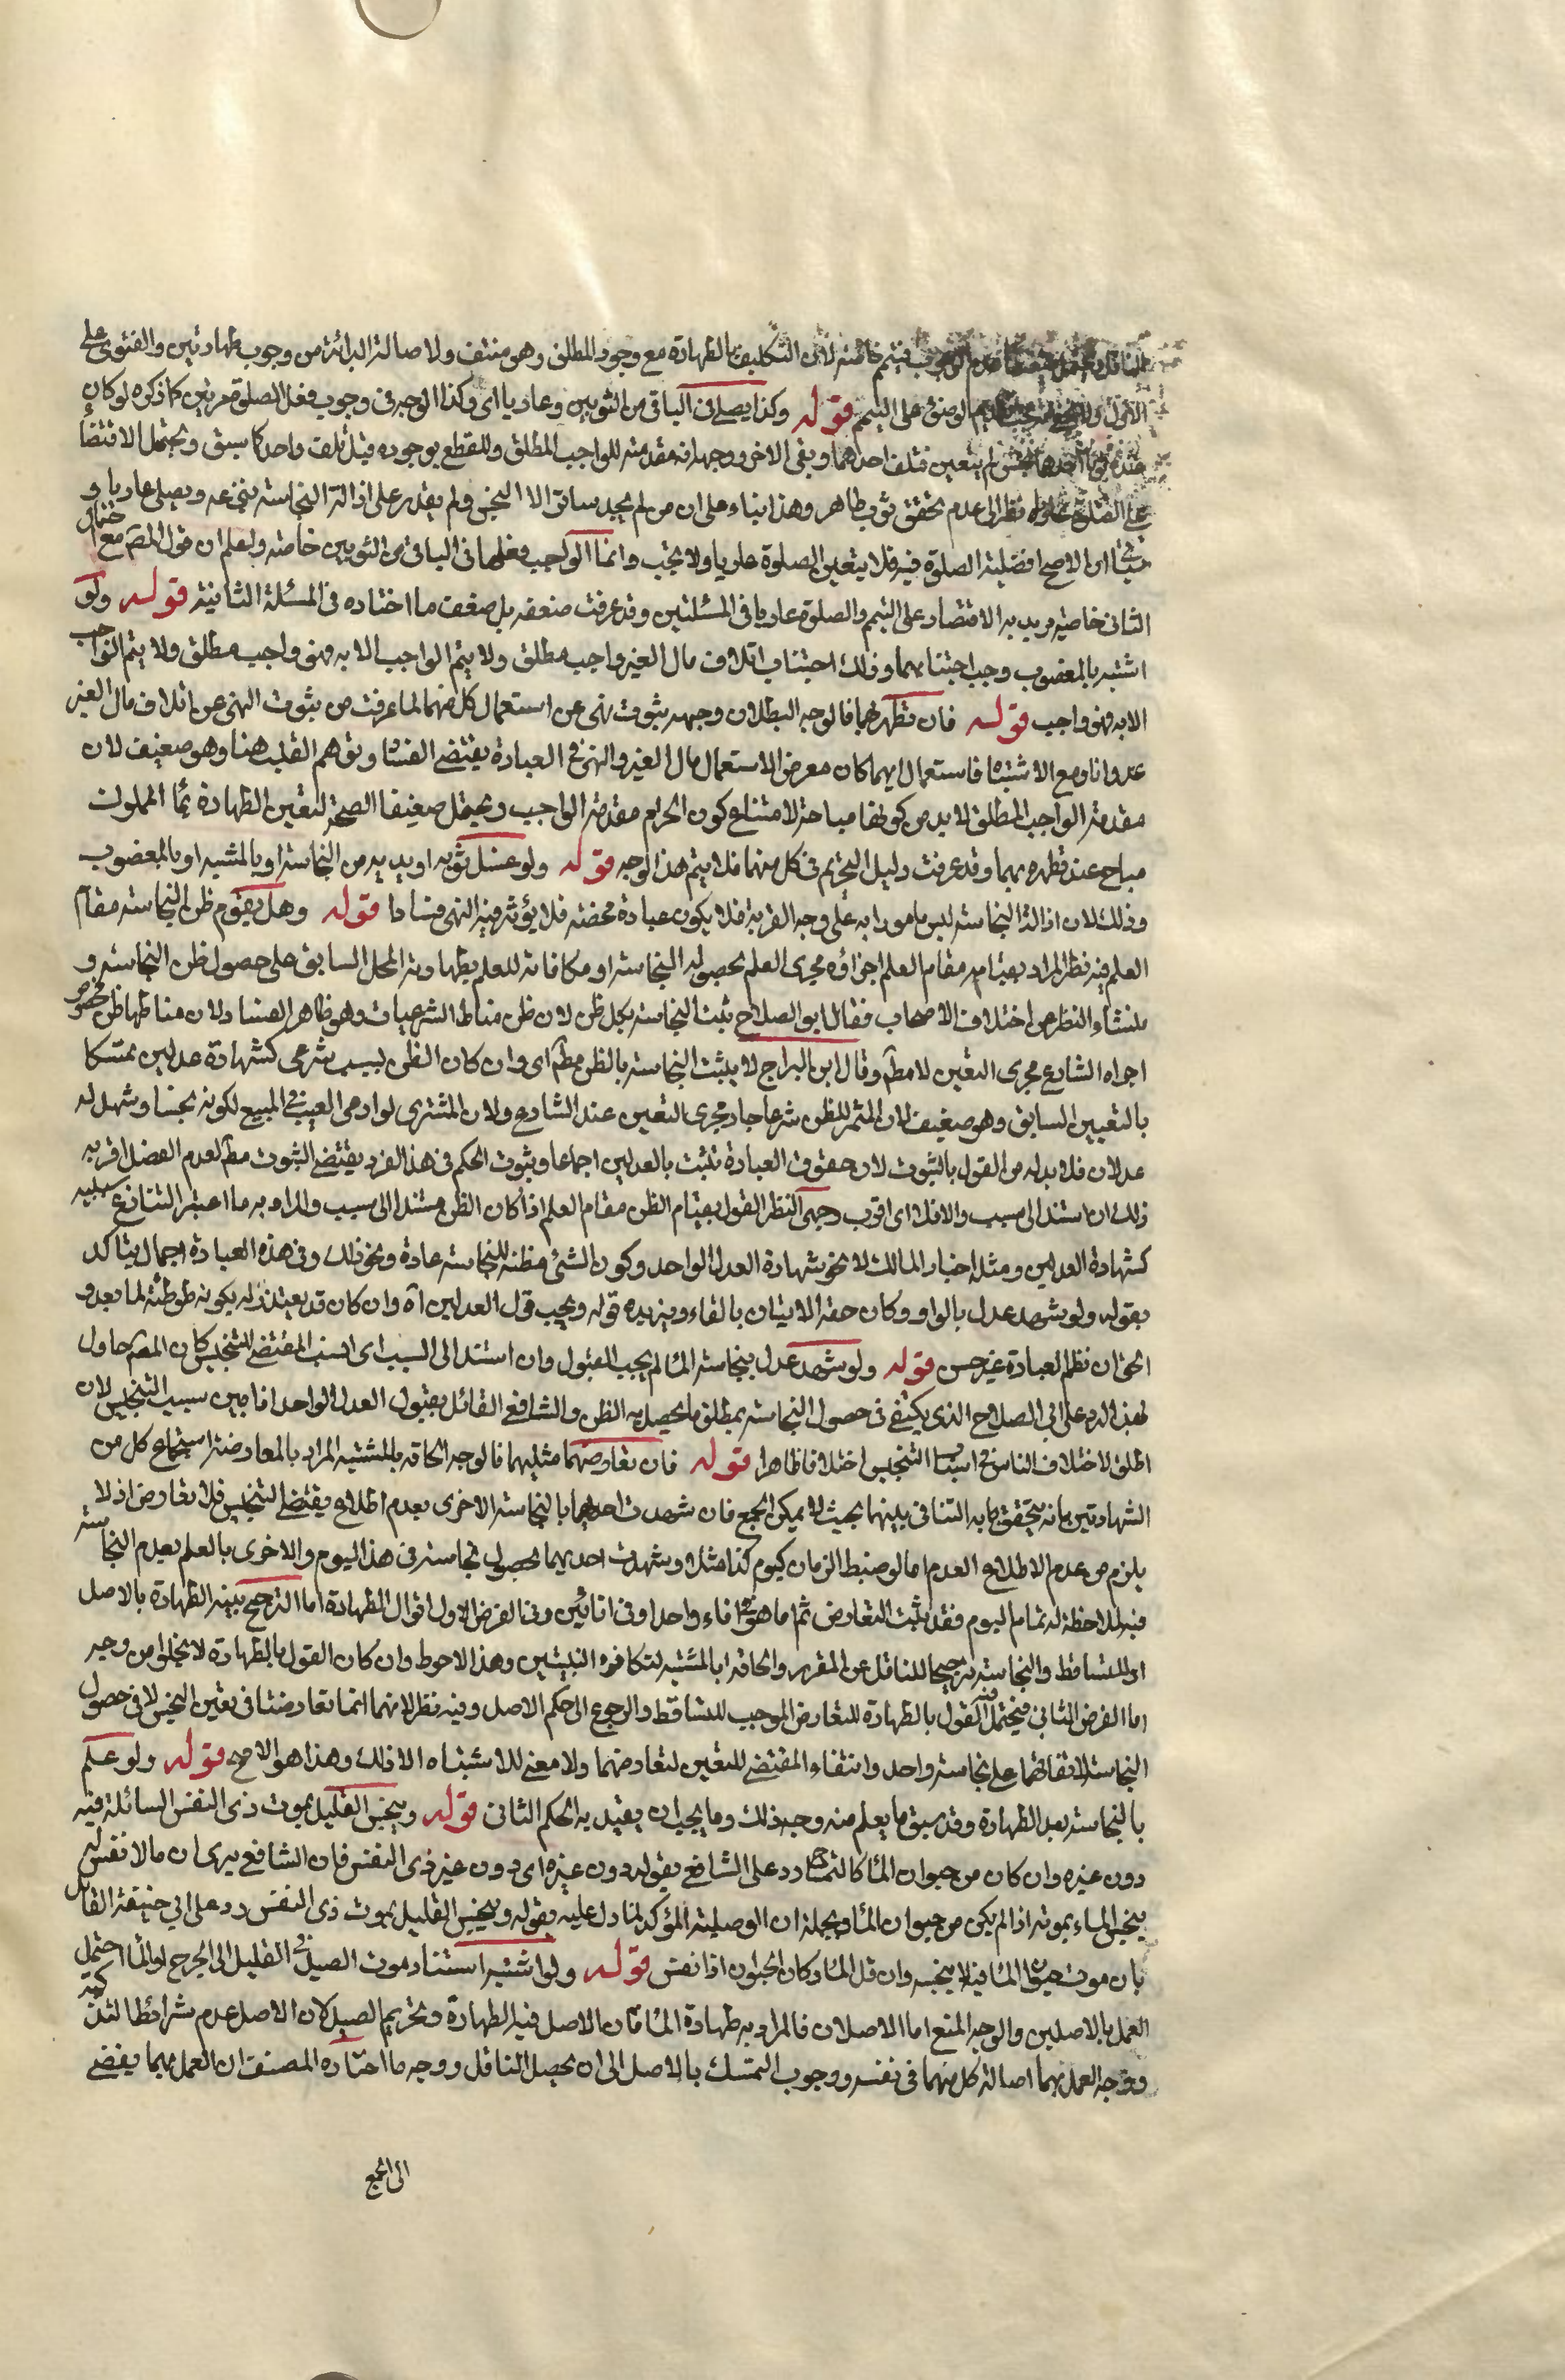 فيتيمم خاصة لان التكليف بالطهارة مع وجود المطلق وهو منتف ولاصالة البرائة من وجوب طهارتين والفتوى على
الاول الوضوء على التيمم قوله وكذا يصلى فى الباقى من الثوبين وعاريا اى وكذا الوجه فى وجوب فعل الصلوة مرتين كما ذكره لو كان
عنده ثوبان احدهما نجس لم يتعين فتلف احدهما وبقى الاخر ووجهه انه مقدمة للواجب المطلق وللقطع بوجوده قبل تلف واحد كما سبق ويحتمل الاقتصا
على الصلوة عاريا نظرا الى عدم تحقق ثوب طاهر وهذا بناء على ان من لم يجد ساترا الا النجس ولم يقدر على ازالة النجاسة ينزعه ويصلى عاريا و
سيأتى ان الاصح افضلية الصلوة فيه فلا يتعين الصلوة عاريا ولا تجب وانما الواجب فعلها فى الباقى من الثوبين خاصة واعلم ان قول المص مع احتمال
الثانى خاصة يريد به الاقتصار على التيمم والصلوة عاريا فى المسئلتين وقد عرفت ضعفه بل ضعف ما اختاره فى المسئلة الثانية قوله ولو
اشتبه بالمغصوب وجب اجتنابهما وذلك اجتناب اتلاف مال الغير واجب مطلق ولا يتم الواجب الا به فهو واجب مطلق ولا يتم الواجب
الا به فهو واجب قوله فان تطهر بهما فالوجه البطلان وجهه ثبوت نهى عن استعمال كل منهما لما عرفت من ثبوت النهى عن اتلاف مال الغير
عدوانا ومع الاشتباه فاستعمال ايهما كان معرض الاستعمال مال الغير والنهى فى العبادة يقتضى الفساد وتوهم القلب هنا وهو ضعيف لان
مقدمة الواجب المطلق لا بد من كونها مباحة لامتناع كون الحرام مقدمة الواجب ويحتمل ضعيفا الصحة لتعين الطهارة بماء مملوك
مباح عند تطهره بهما وقد عرفت دليل التحريم فى كل منهما فلا يتم هذا الوجه قوله ولو غسل ثوبه او بدنه من النجاسة او بالمشتبه او بالمغصوب
وذلك لان ازالة النجاسة ليس مامورا به على وجه القربة فلا يكون عبادة محضة فلا يؤثر فيه النهى فسادا قوله وهل يقوم ظن النجاسة مقام
العلم فيه نظر المراد بقيامه مقام العلم اجزاؤه مجرى العلم بحصول النجاسة او مكافاته للعلم بطهارة المحل السابق على حصول ظن النجاسة و
منشاء النظر من اختلاف الاصحاب فقال ابو الصلاح تثبت النجاسة بكل ظن لان ظن مناط الشرعيات وهو ظاهر الفساد لان مناطها ظن مخصوص
اجراه الشارع مجرى اليقين لا مطم وقال ابن البراج لا يثبت النجاسة بالظن مطم اى وان كان الظن بسبب شرعى كشهادة عدلين تمسكا
باليقين السابق وهو ضعيف لان المثمر للظن شرعا جار مجرى اليقين عند الشارع ولان المشترى لو ادعى العيب فى المبيع لكونه نجسا وشهد له
عدلان فلا بد له من القول بالثبوت لان حقوق العبادة تثبت بالعدلين اجماعا وثبوت الحكم فى هذا الفرد يقتضى الثبوت مطم لعدم الفصل اقربه
ذلك ان استند الى سبب والا فلا اى اقوب وجهى النظر القول بقيام الظن مقام العلم اذا كان الظن مستندا الى سبب والمراد به ما اعتبر الشارع سببيته
كشهادة العدلين ومثله اخبار المالك لا نحو شهادة العدل الواحد وكون الشئ مظنة للنجاسة عادة ونحو ذلك وفى هذه العبارة اجمال يتاكد
بقوله ولو شهد عدل بالواو وكان حقه الاتيان بالفاء ويزيده قوله ويجب قول العدلين اه وان كان قد يعتذر له بكونه توطئة لما بعده و
الحق ان نظم العبارة غير حسن قوله ولو شهد عدل بنجاسة الماء لم يجب القبول وان استند الى السبب اى السبب المقتضى للتنجيس كان المص حاول
بهذا الرد على ابى الصلاح الذى يكتفى فى حصول النجاسة بمطلق ما يحصل به الظن والشافعى القائل بقبول العدل الواحد اذا بين سبب التنجيس لان
اطلق لاختلاف الناس فى اسباب التنجيس اختلافا ظاهرا قوله فان تعارضهما مثليهما فالوجه الحاقه بالمشتبه المراد بالمعارضة اجتماع كل من
الشهادتين بانه يتحقق ما به التنافى بينهما بحيث لا يمكن الجمع فان شهدت احديهما بالنجاسة الاخرى بعدم اطلاع يقتضى التنجيس فلا تعارض اذ لا
يلزم من عدم الاطلاع العدم اما لو ضبط الزمان كيوم كذا مثلا وشهدت احديهما بحصول نجاسة فى هذا اليوم والاخرى بالعلم بعدم النجاسة
فيه لملاحظة له تمام اليوم فقد يثبت التعارض ثم اما هو فى اناء واحد او فى انائين وفى الفرض الاول اقوال الطهارة اما لترجيح بينة الطهارة بالاصل
او للتساقط والنجاسة ترجيحا للناقل عن المقرر والحاقه بالمشتبه لتكافوء البينتين وهذا الاحوط وان كان القول بالطهارة لا يخلوا من وجه
اما الفرض الثانى فيحتمل فيه القول بالطهارة للتعارض الموجب للتساقط والرجوع الى حكم الاصل وفيه نظر لانهما انما تعارضتا فى تعيين النجس لا فى حصول
النجاسة لاتفاقهما على نجاسة واحد وانتفاء المقتضى للتعيين لتعارضهما ولا معنى للاشتباه الا ذلك وهذا هو الاصح قوله ولو علم
بالنجاسة بعد الطهارة وقد سبق ما يعلم منه وجه ذلك وما يجب ان يقيد به الحكم الثانى قوله وينجس القليل بموت ذى النفس السائلة فيه
دون غيره وان كان من حيوان الماء كالتمساح رد على الشافعى بقوله دون غيره اى دون غير ذى النفس فان الشافعى يرى ان ما لا نفس له
ينجس الماء بموته اذا لم يكن من حيوان الماء وبجملة ان الوصلية المؤكد لما دل عليه بقوله وينجس القليل بموت ذى النفس رد على ابى حنيفة القائل
بان موت حيوان الماء فيه لا ينجسه وان قل الماء وكان الحيوان اذا نفس قوله ولو اشتبه استناد موت الصيد فى القليل الى الجرح او الماء احتمل
العمل بالاصلين والوجه المنع اما الاصلان فالمراد به طهارة الماء فان الاصل فيه الطهارة وتحريم الصيد لان الاصل عدم شرائط التذكية
ووجه العمل بهما اصالة كل منهما فى نفسه ووجوب التمسك بالاصل الى ان يحصل الناقل ووجه ما اختاره المصنف ان العمل بهما يفضى
الى الجمع